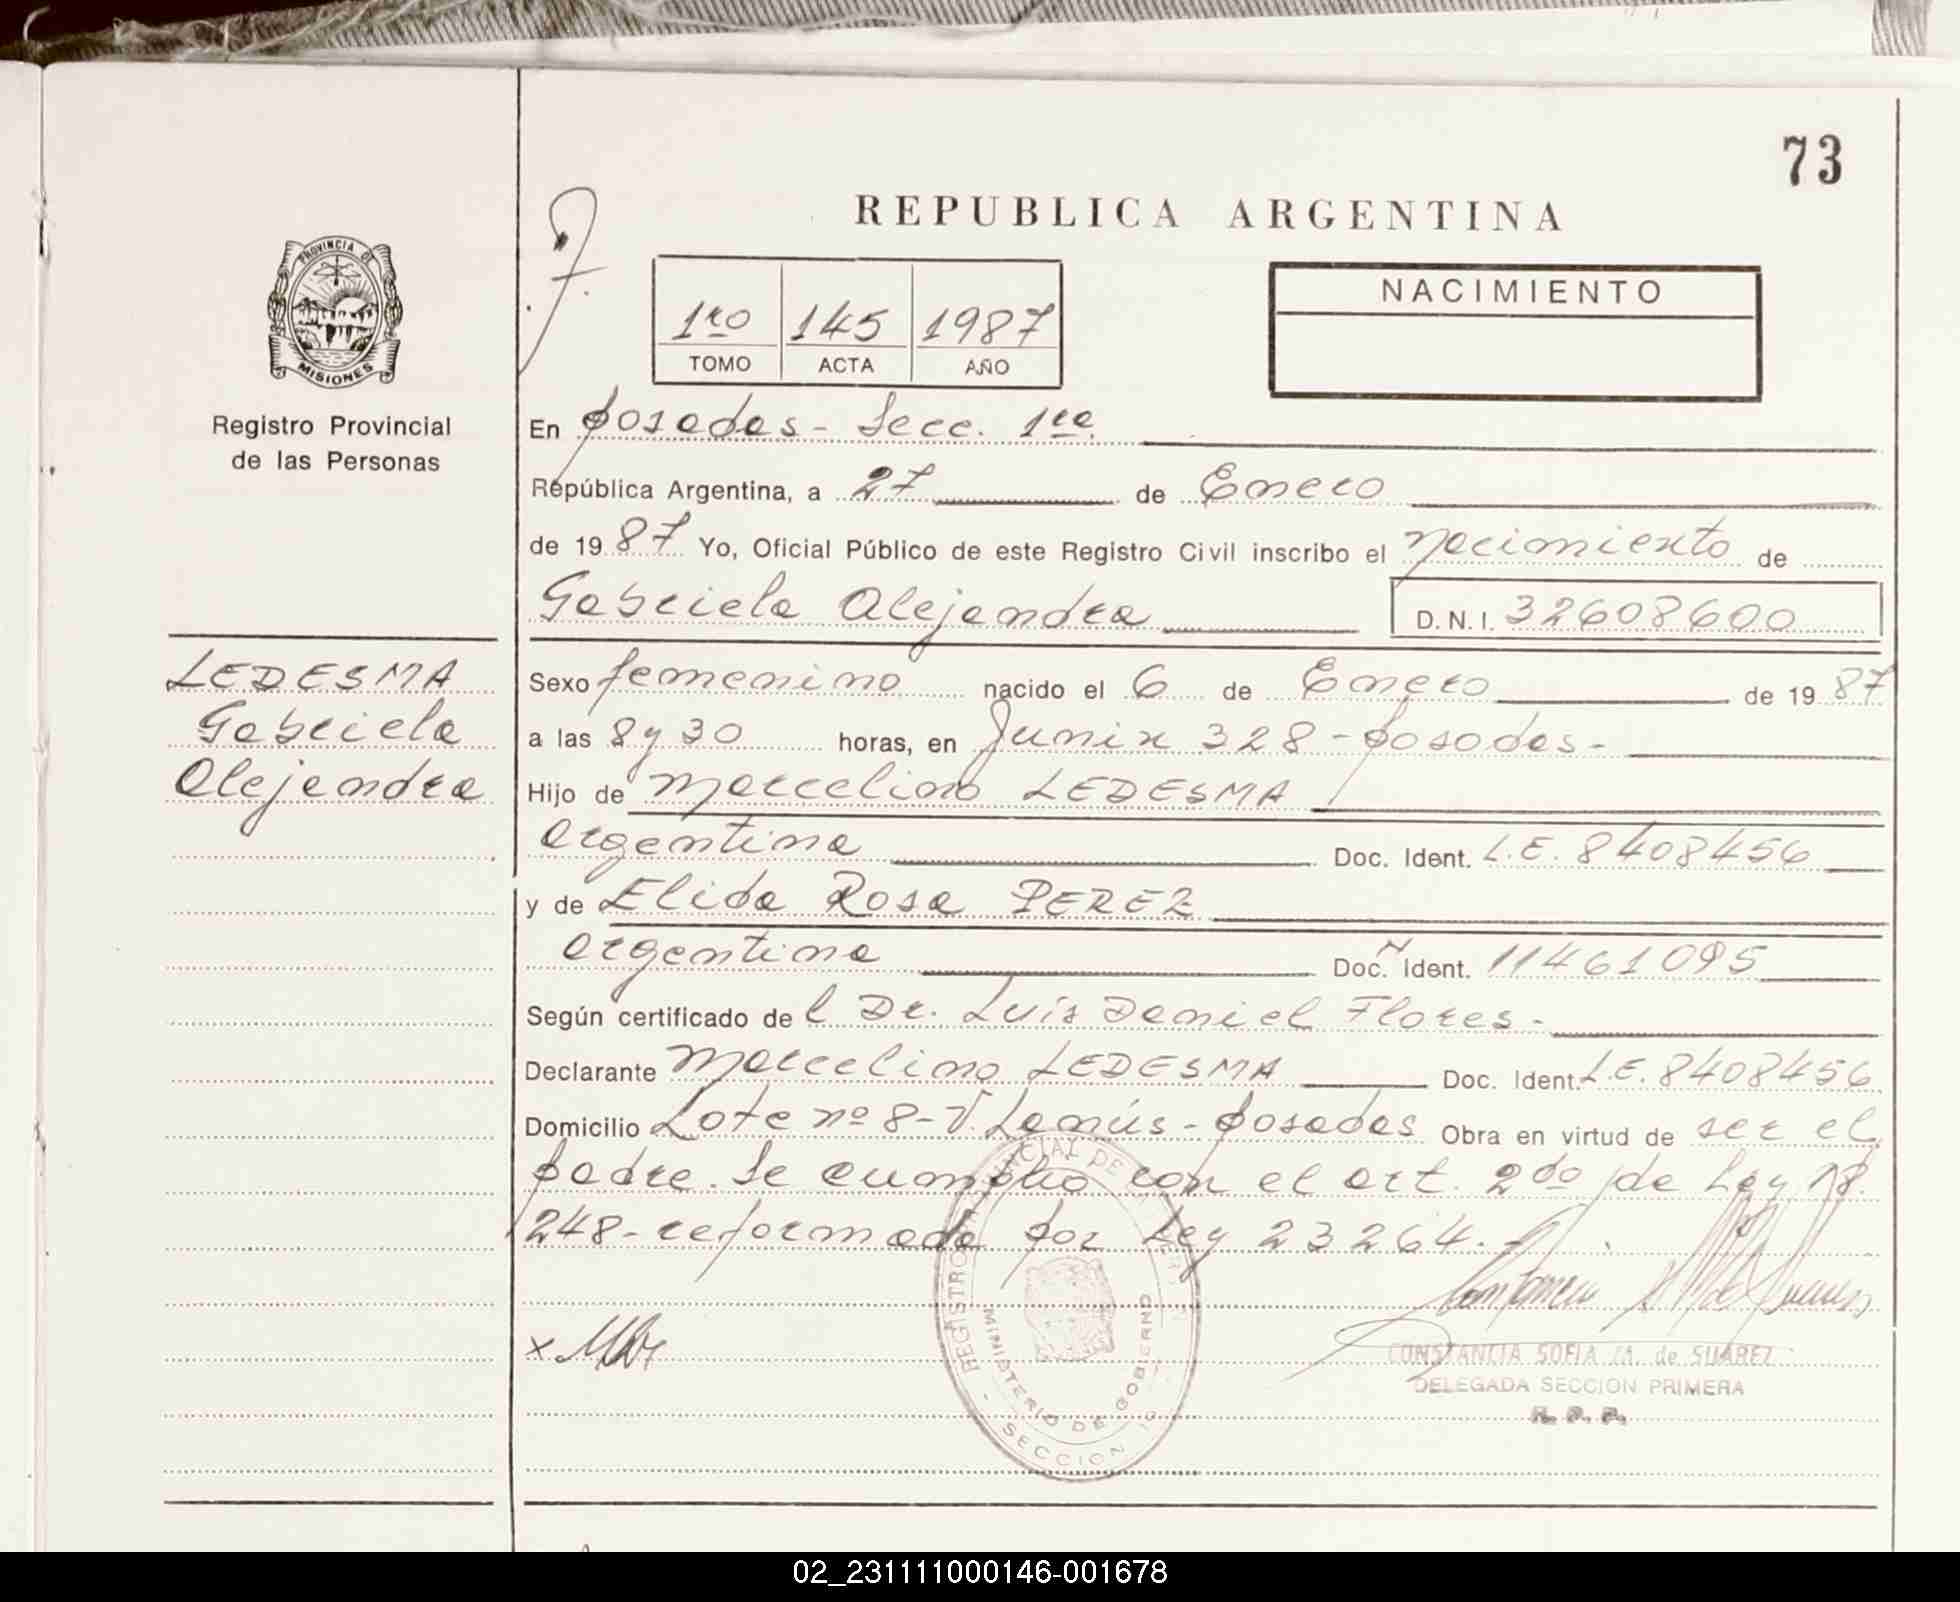 73
REPUBLICA ARGENTINA
PROVINCIA DE
MISIONES
Registro Provincial
de las Personas
1ro 145 1987
TOMO ACTA AÑO
NACIMIENTO
En Posadas - Secc. 1ra.
República Argentina, a 27 de Enero
de 1987 Yo, Oficial Público de este Registro Civil inscribo el nacimiento de
Gabriela Alejandra D.N.I. 32608600
LEDESMA
Gabriela
Alejandra
Sexo femenino nacido el 6 de Enero de 1987
a las 8 y 30 horas, en Junin 328 - Posadas -
Hijo de Marcelino LEDESMA
argentina Doc. Ident. L.E. 8408456
y de Elida Rosa PEREZ
argentina Doc. Ident. 11461095
Según certificado de l Dr. Luis Daniel Flores -
Declarante Marcelino LEDESMA Doc. Ident. L.E. 8408456
Domicilio Lote nº 8 - V. Lanús - Posadas Obra en virtud de ser el
padre. Se cumplio con el art. 2do de Ley 18.
248 - reformado por Ley 23264. -
REGISTRO PROVINCIAL DE
MINISTERIO DE GOBIERNO
SECCION 1ª
x
CONSTANCIA SOFIA M. de SUAREZ
DELEGADA SECCION PRIMERA
R. P. P.
02_231111000146-001678